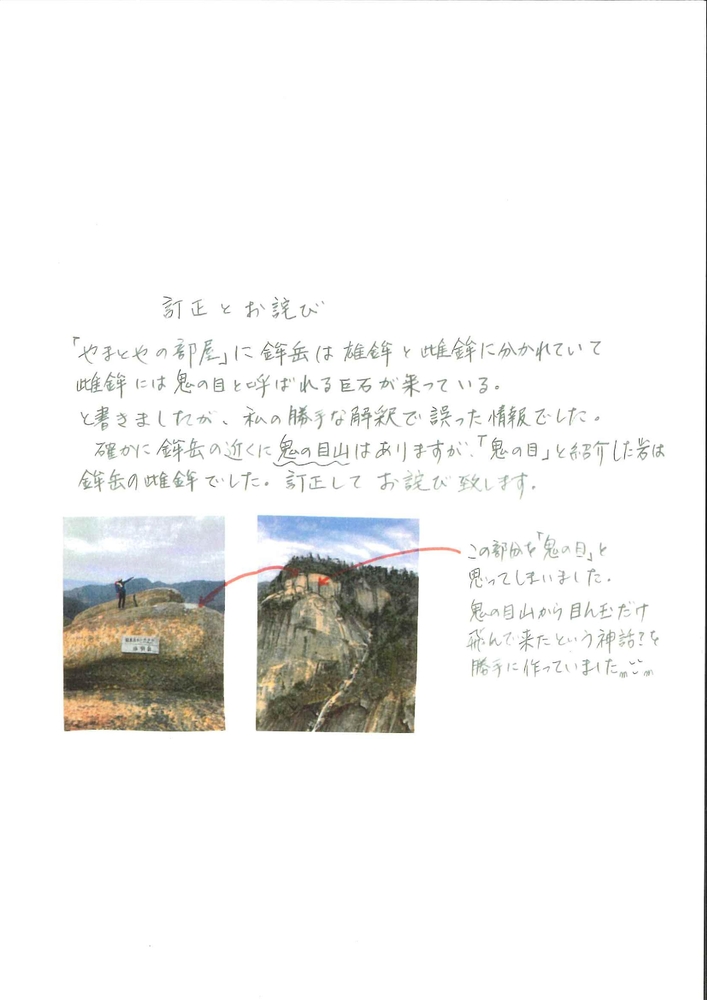 訂正とお詫び
「やまとやの部屋」に鉾岳は雄鉾と雌鉾に分かれていて
雌鉾には鬼の目と呼ばれる巨石が乗っている。
と書きましたが、私の勝手な解釈で誤った情報でした。
確かに鉾岳の近くに鬼の目山はありますが、「鬼の目」と紹介した岩は
鉾岳の雌鉾でした。訂正してお詫び致します。
この部分を「鬼の目」と
思ってしまいました。
鬼の目山から目ん玉だけ
飛んで来たという神話?を
勝手に作っていました